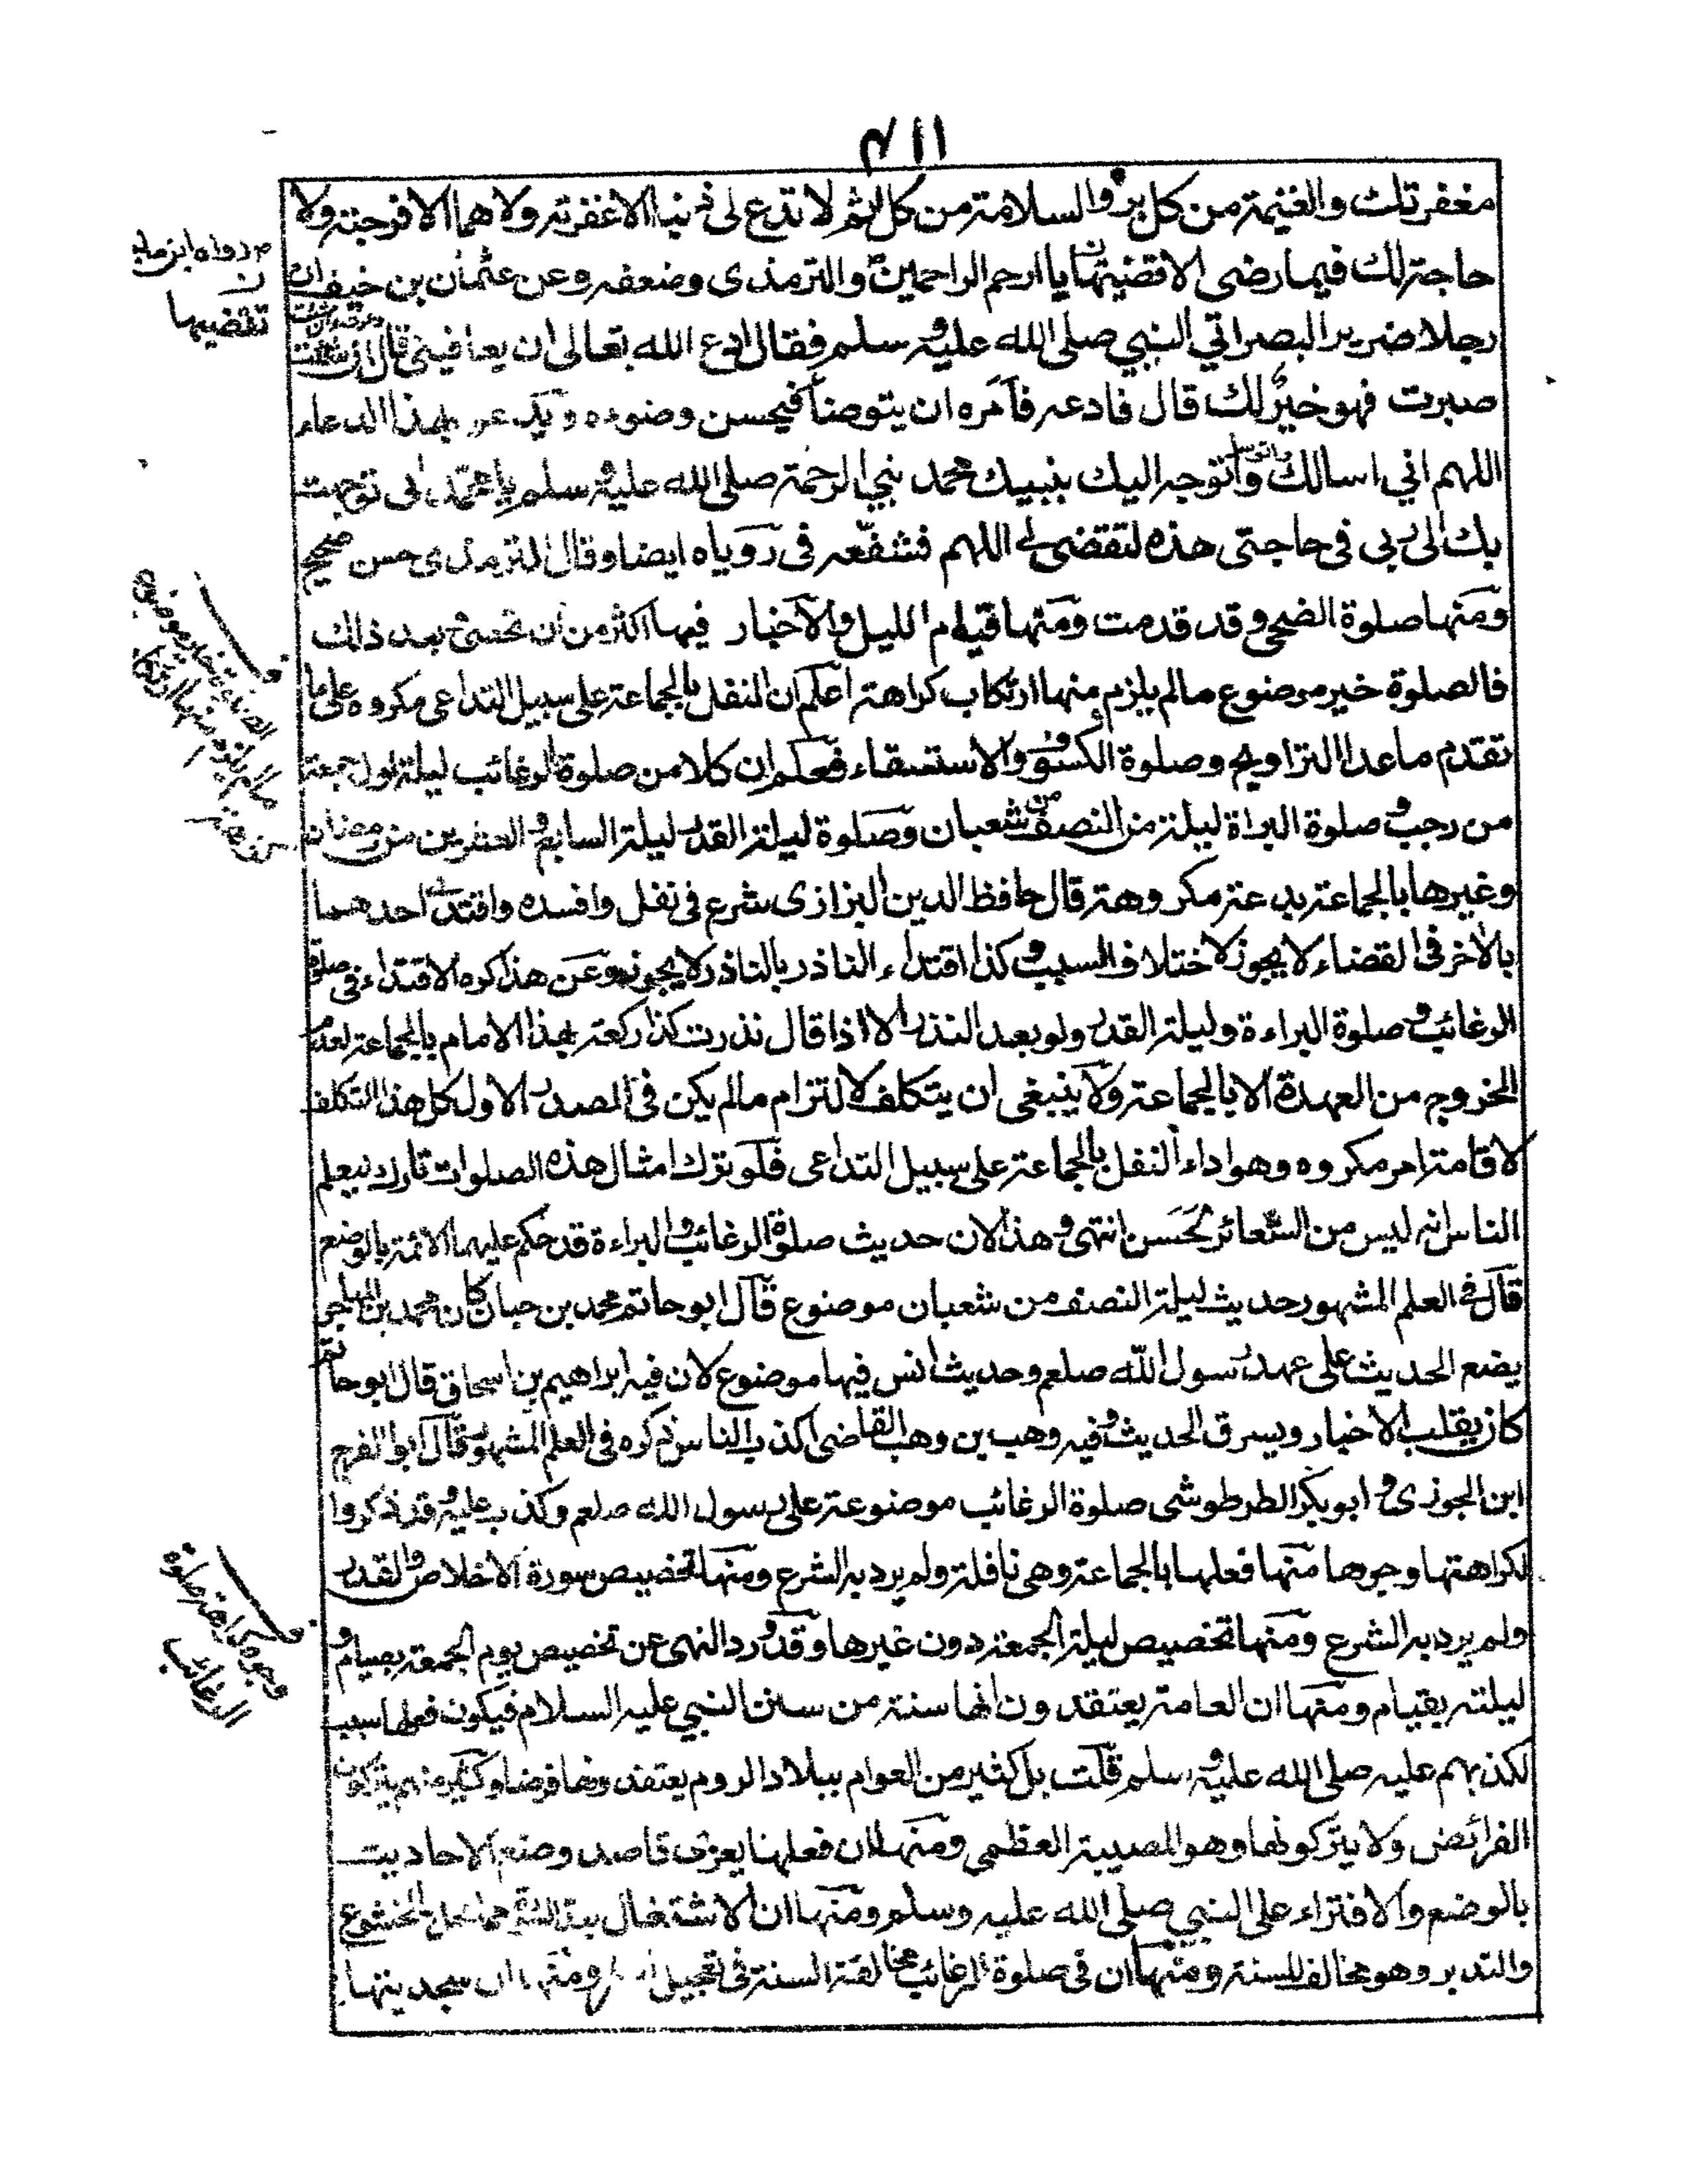 ٤١١
مغفرتك والغنيمة من كل بر والسلامة من كل اثم لا تدع لى ذنبا الا غفرته ولا هما الا فرجته ولا
حاجة لك فيها رضى الا قضيتها يا ارحم الراحمين والترمذى وضعفه وعن عثمان بن حنيف ان
رجلا ضرير البصر اتي النبي صلى الله عليه وسلم فقال ادع الله تعالى ان يعافيني قال ان شئت
صبرت فهو خير لك قال فادعه فآمره ان يتوضأ فيحسن وضوءه ويدعو بهذا الدعاء
اللهم اني اسالك واتوجه اليك بنبيك محمد نبي الرحمة صلى الله عليه وسلم يا محمد انى توجهت
بك الى ربى فى حاجتى هذه لتقضى لي اللهم فشفعه فى رويـاه ايضا وقال الترمذى حسن صحيح
ومنها صلوة الضحى وقد قدمت ومنها قيام الليل والآخبار فيها اكثر من ان تحصى بعد ذالك
فالصلوة خير موضوع مالم يلزم منها ارتكاب كراهة اعلم ان النفل بالجماعة على سبيل التداعى مكروه على ما
تقدم ماعدا التراويح وصلوة الكسوف والاستسقاء فعلم ان كلا من صلوة الرغائب ليلة اول جمعة
من رجب وصلوة البراة ليلة من النصف من شعبان وصلوة ليلة القدر ليلة السابع والعشرين من رمضان
وغيرها بالجماعة بدعة مكروهة قال حافظ الدين البزازى شرع فى نفل وافسده واقتدى احدهما
بالآخر فى القضاء لا يجوز لاختلاف السبب وكذا اقتداء الناذر بالناذر لا يجوز وعن هذا كره الاقتداء فى صلوة
الرغائب وصلوة البراءة وليلة القدر ولو بعد النذر الا اذا قال نذرت كذا ركعة بهذا الامام بالجماعة لعدم
الخروج من العهدة الا بالجماعة ولا ينبغى ان يتكلف لالتزام مالم يكن فى الصدر الاول كل هذا التكلف
لاقامة امر مكروه وهو اداء النفل بالجماعة على سبيل التداعى فلو ترك امثال هذه الصلوات تارك ليعلم
الناس انه ليس من الشعائر لحسن انتهى وهذا لان حديث صلوة الرغائب والبراءة قد حكم عليهما الائمة بالوضع
قال فى العلم المشهور حديث ليلة النصف من شعبان موضوع قال ابو حاتم محمد بن حبان كان محمد بن المهاجر
يضع الحديث على عهد رسول الله صلعم وحديث انس فيها موضوع لان فيه ابراهيم بن اسحاق قال ابو حاتم
كان يقلب الاخبار ويسرق الحديث وفيه وهب بن وهب القاضى اكذب الناس ذكره فى العلم المشهور وقال ابو الفرج
ابن الجوزى وابو بكر الطرطوشى صلوة الرغائب موضوعة على رسول الله صلعم وكذب عليه وقد ذكروا
لكراهتها وجوها منها فعلها بالجماعة وهى نافلة ولم يرد به الشرع ومنها تخصيص سورة الاخلاص والقدر
ولم يرد به الشرع ومنها تخصيص ليلة الجمعة دون غيرها وقد ورد النهى عن تخصيص يوم الجمعة بصيام و
ليلته بقيام ومنها ان العامة يعتقدون انها سنة من سنن النبي عليه السلام فيكون فعلها سبب
لكذبهم عليه صلى الله عليه وسلم قلت بل كثير من العوام ببلاد الروم يعتقدونها فرضا وكثير منهم يتركون
الفرائض ولا يتركونها وهو المصيبة العظمى ومنها ان فعلها يغرى قاصد وضع الاحاديث
بالوضع والافتراء على النبي صلى الله عليه وسلم ومنها ان الاشتغال بعد السور مما يخل بالخشوع
والتدبر وهو مخالف للسنة ومنها ان فى صلوة الرغائب مخالفة السنة فى تعجيل ومنها ان سجديتها
م رواه ابن ماجه
ن
تقضيها
الصلوة خير موضوع
مالم يلزم منها ارتكاب
وجوه كراهة صلوة
الرغائب